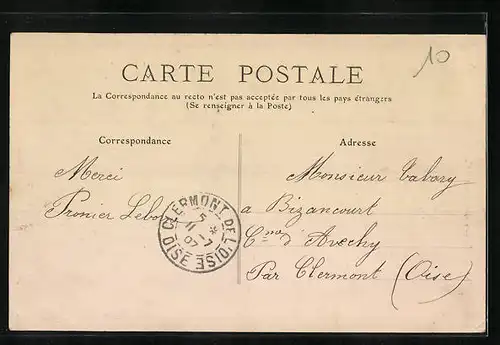 10
CARTE POSTALE
La Correspondance au recto n'est pas acceptée par tous les pays étrangers
(Se renseigner à la Poste)
Correspondance
Adresse
Merci
Pronier Lebon
CLERMONT DE L'OISE
5 *
11 -7
07
OISE
Monsieur Tabary
a Bizancourt
Cne d'Avechy
Par Clermont (Oise)